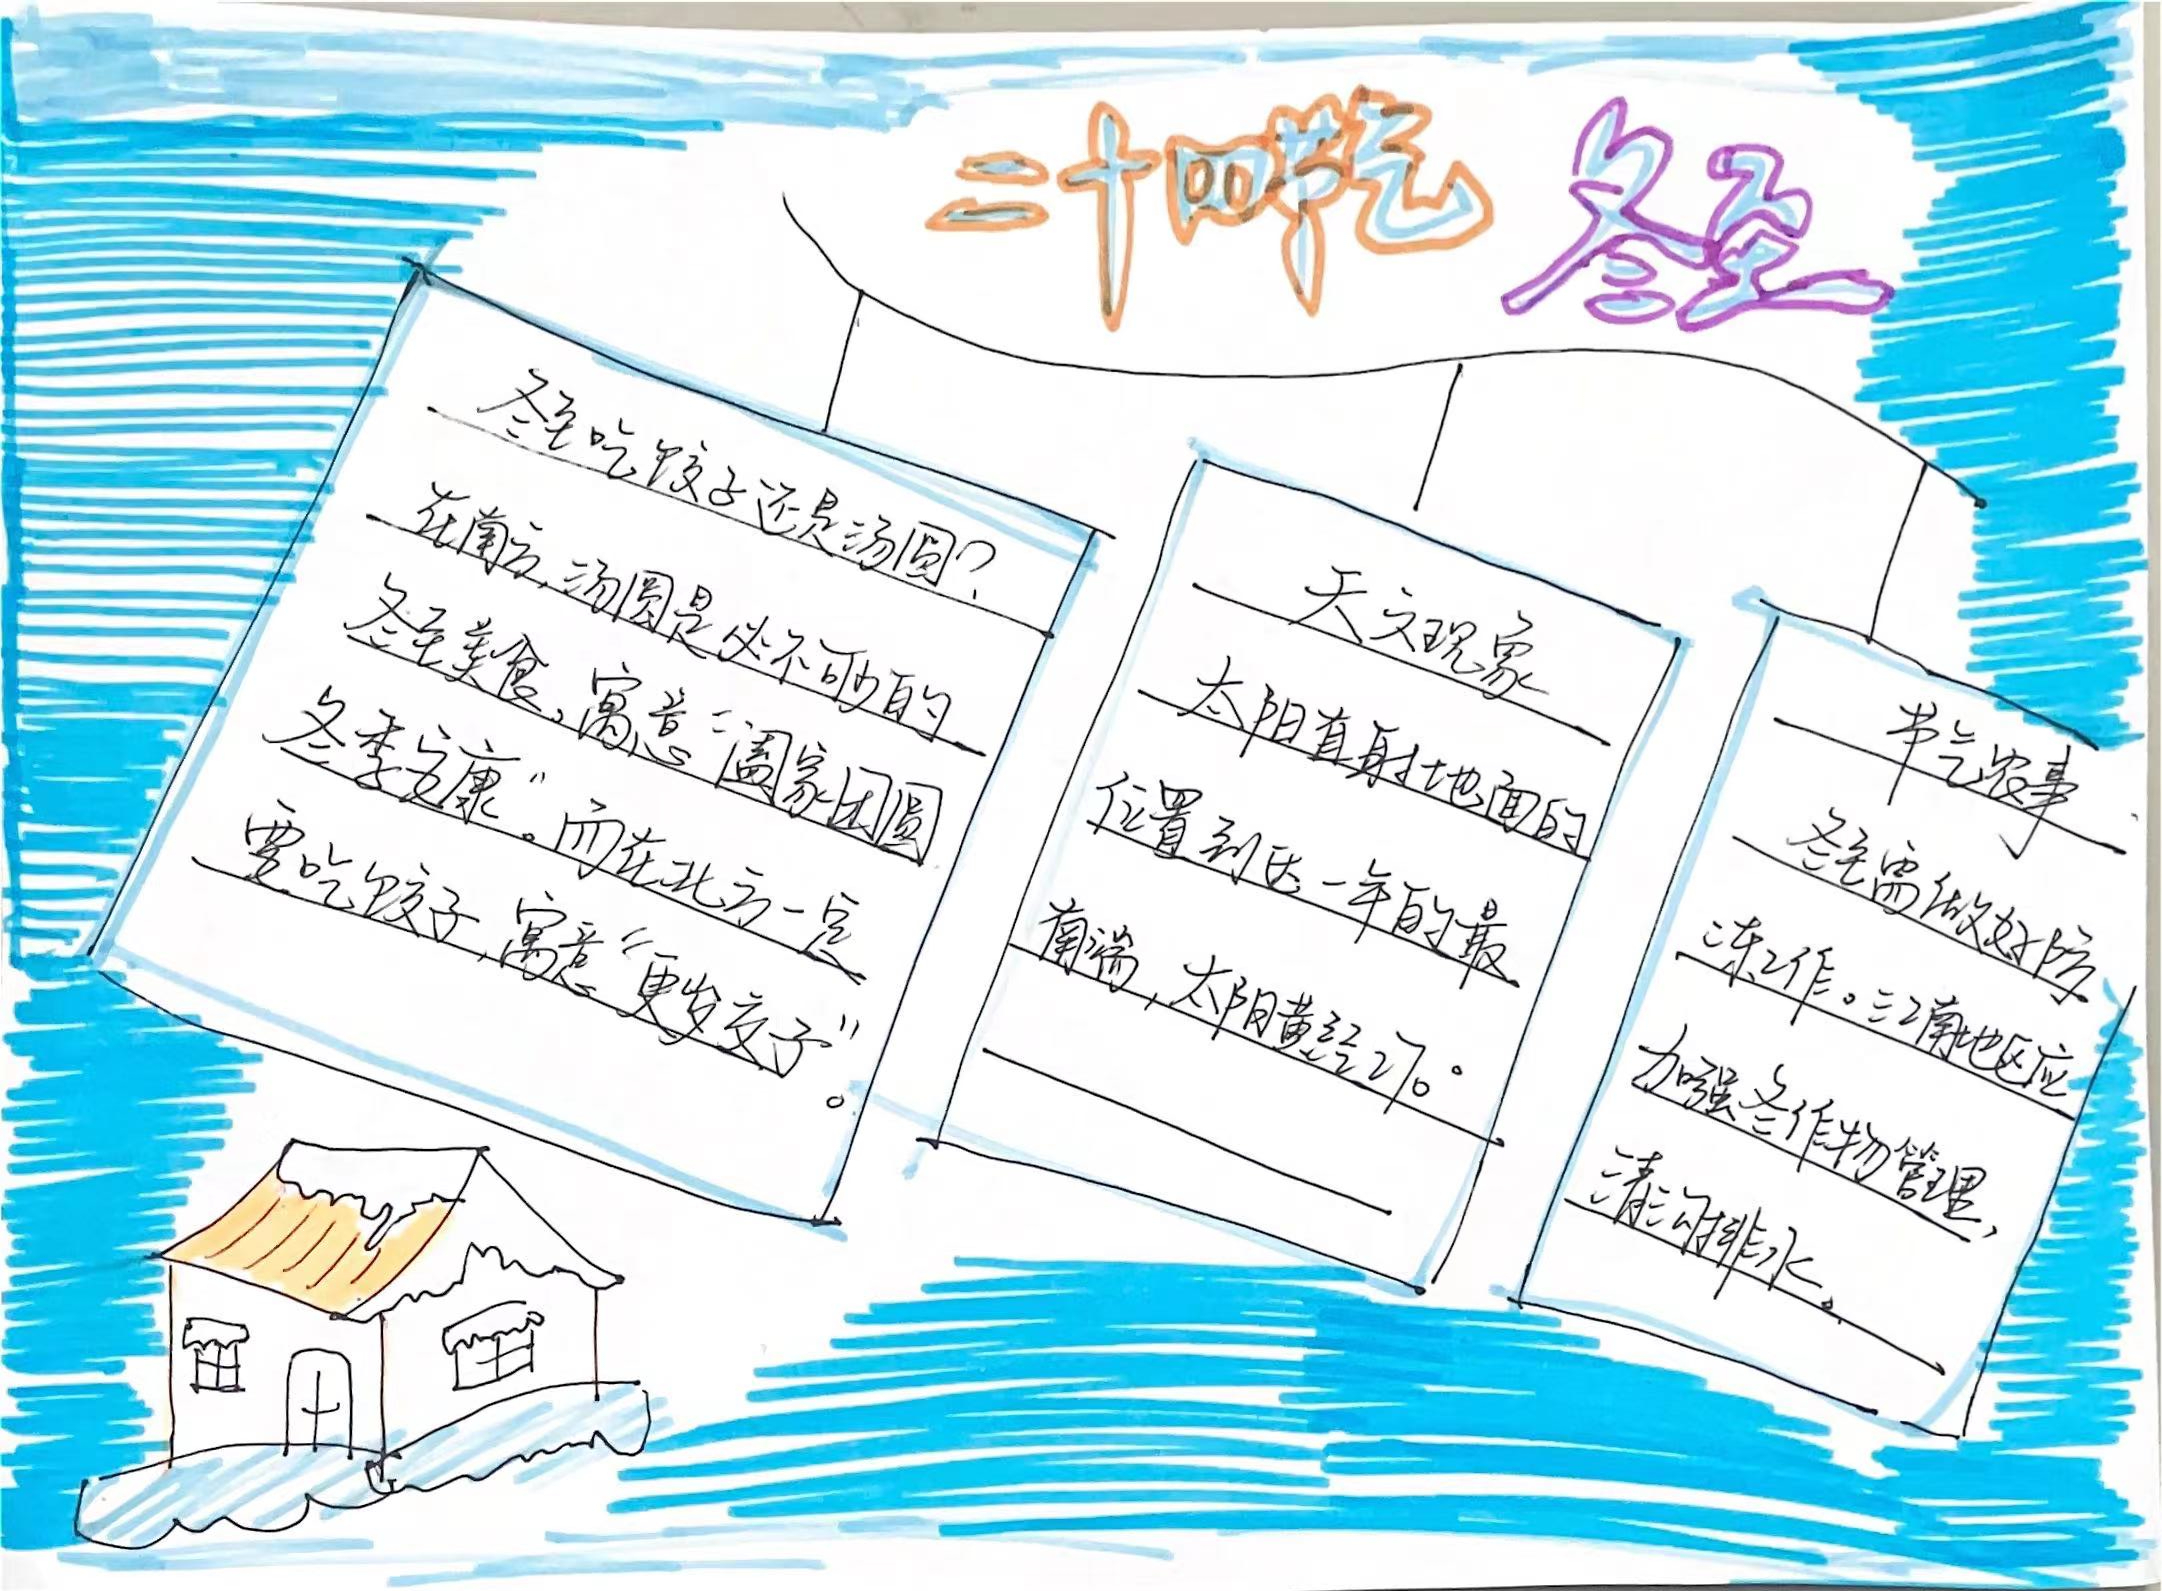 二十四节气 冬至
冬至吃饺子还是汤圆?
在南方,汤圆是必不可少的
冬至美食,寓意“阖家团圆
冬季安康”。而在北方一定
要吃饺子,寓意“更岁交子”。
天文现象
太阳直射地面的
位置到达一年的最
南端,太阳黄经270°。
节气农事
冬至需做好防
冻工作。江南地区应
加强冬作物管理,
清沟排水。